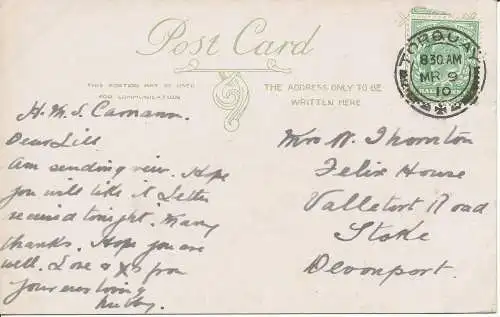 Post Card
THIS PORTION MAY BE USED
FOR COMMUNICATION
THE ADDRESS ONLY TO BE
WRITTEN HERE
TORQUAY
830AM
MR 9
10
H.M.S.
Dear Lill
Am sending view. Hope
you will like it. Letter
received tonight. Many
thanks. Hope you are
well. Love & Xs from
your ever loving
Hubby.
Mrs W. Thornton
Felix House
Valletort Road
Stoke
Devonport.